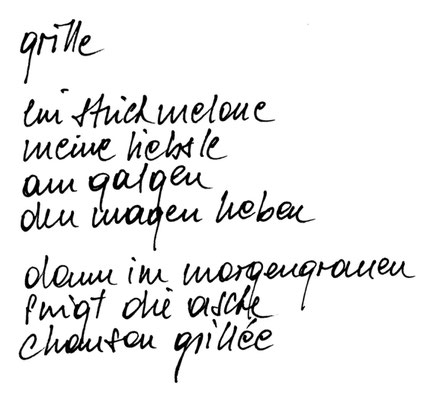 grille
ein stück melone
meine liebste
am galgen
den magen heben
dann im morgengrauen
singt die asche
chanson grillée